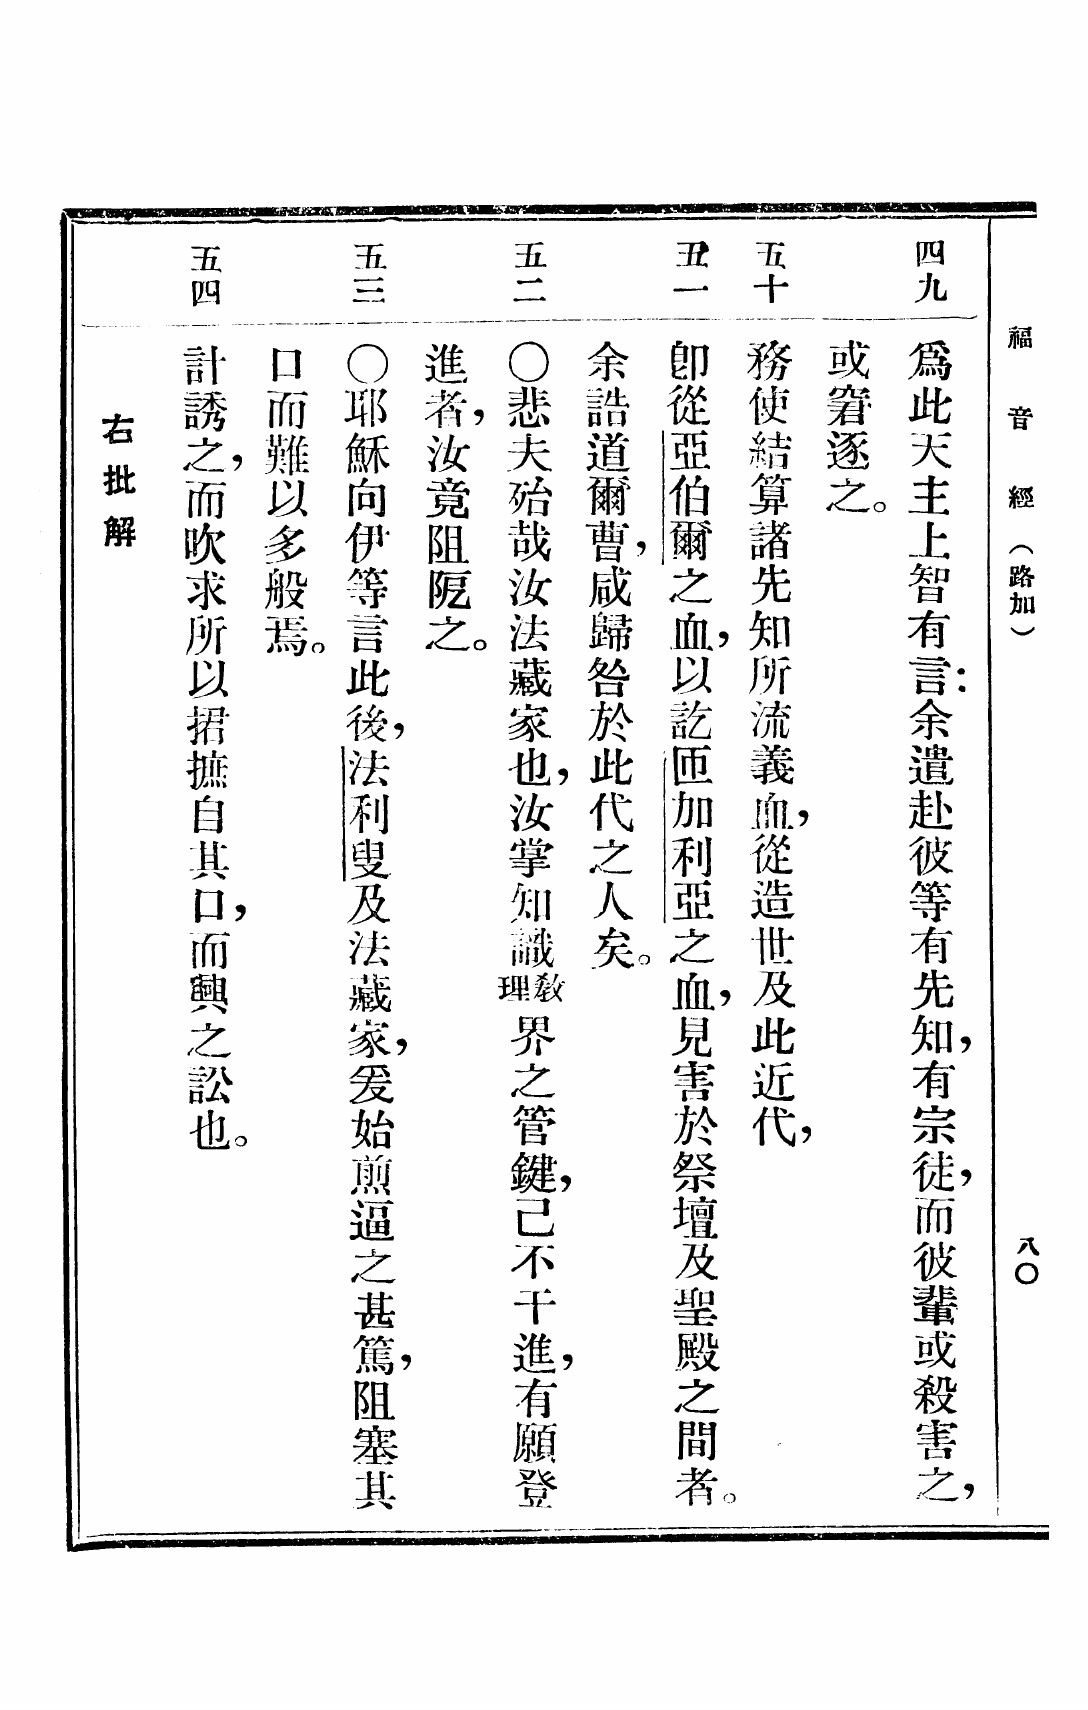 福音經（路加）
八〇
四九
爲此天主上智有言：余遣赴彼等有先知，有宗徒，而彼輩或殺害之，
或窘逐之。
五十
務使結算諸先知所流義血，從造世及此近代，
五一
卽從亞伯爾之血，以訖匝加利亞之血，見害於祭壇及聖殿之間者。
余誥道爾曹，咸歸咎於此代之人矣。
五二
〇悲夫殆哉汝法藏家也，汝掌知識敎理界之管鍵，己不干進，有願登
進者，汝竟阻阨之。
五三
〇耶穌向伊等言此後，法利叟及法藏家，爰始煎逼之甚篤，阻塞其
口而難以多般焉。
五四
計誘之，而吹求所以捃摭自其口，而興之訟也。
右批解